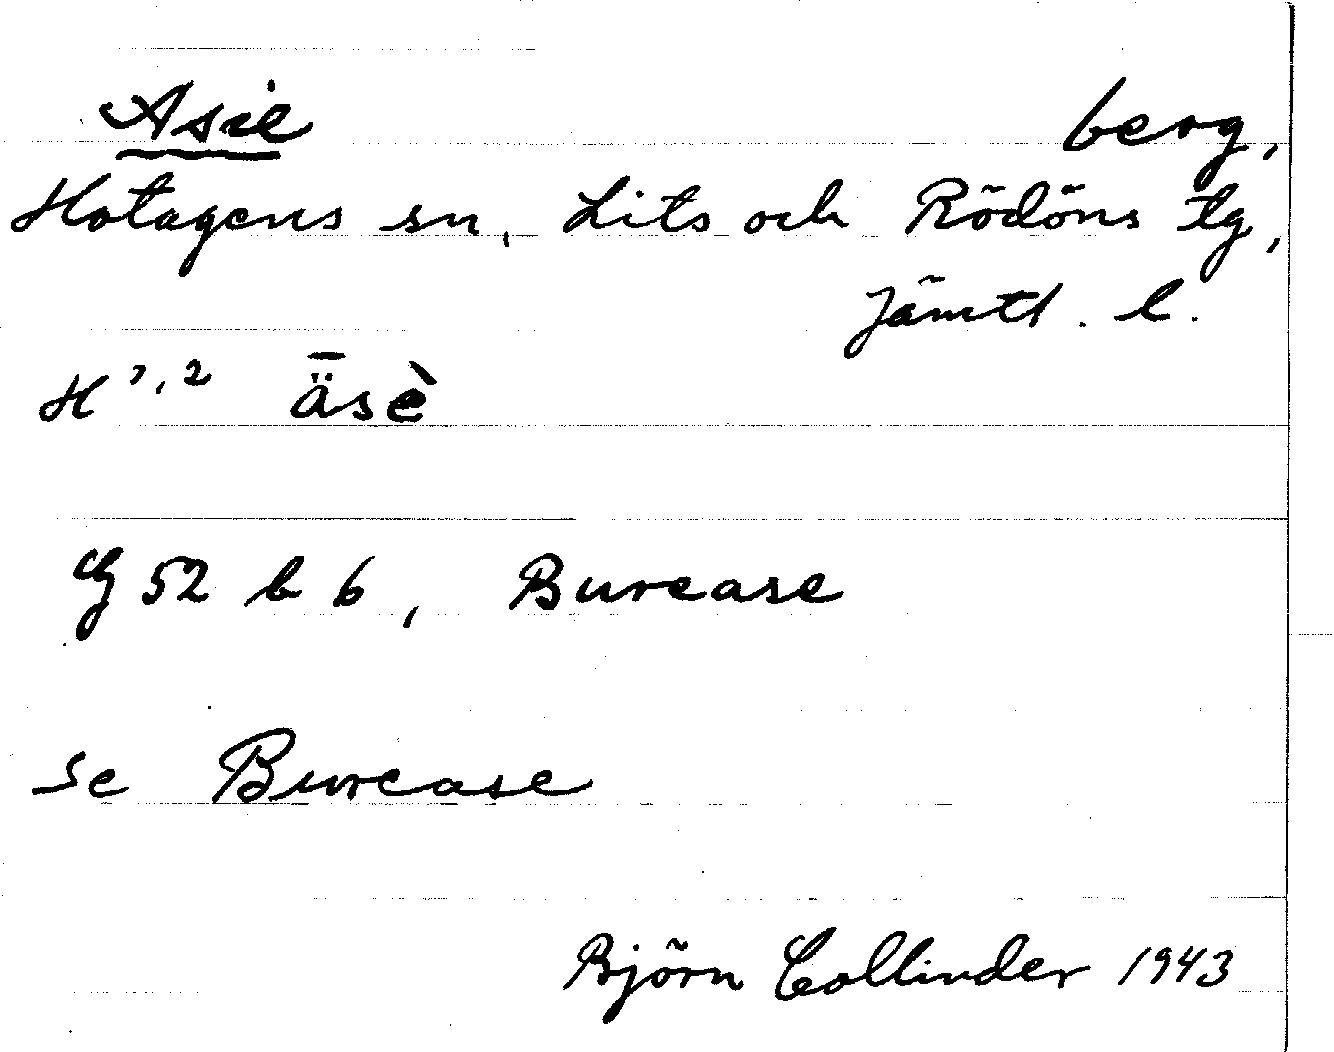 Asie berg,
Hotagens sn, Lits och Rödöns tg,
Jämtl. l.
H 7,2 ǟsè
G 52 b 6, Burease
se Burease
Björn Collinder 1943